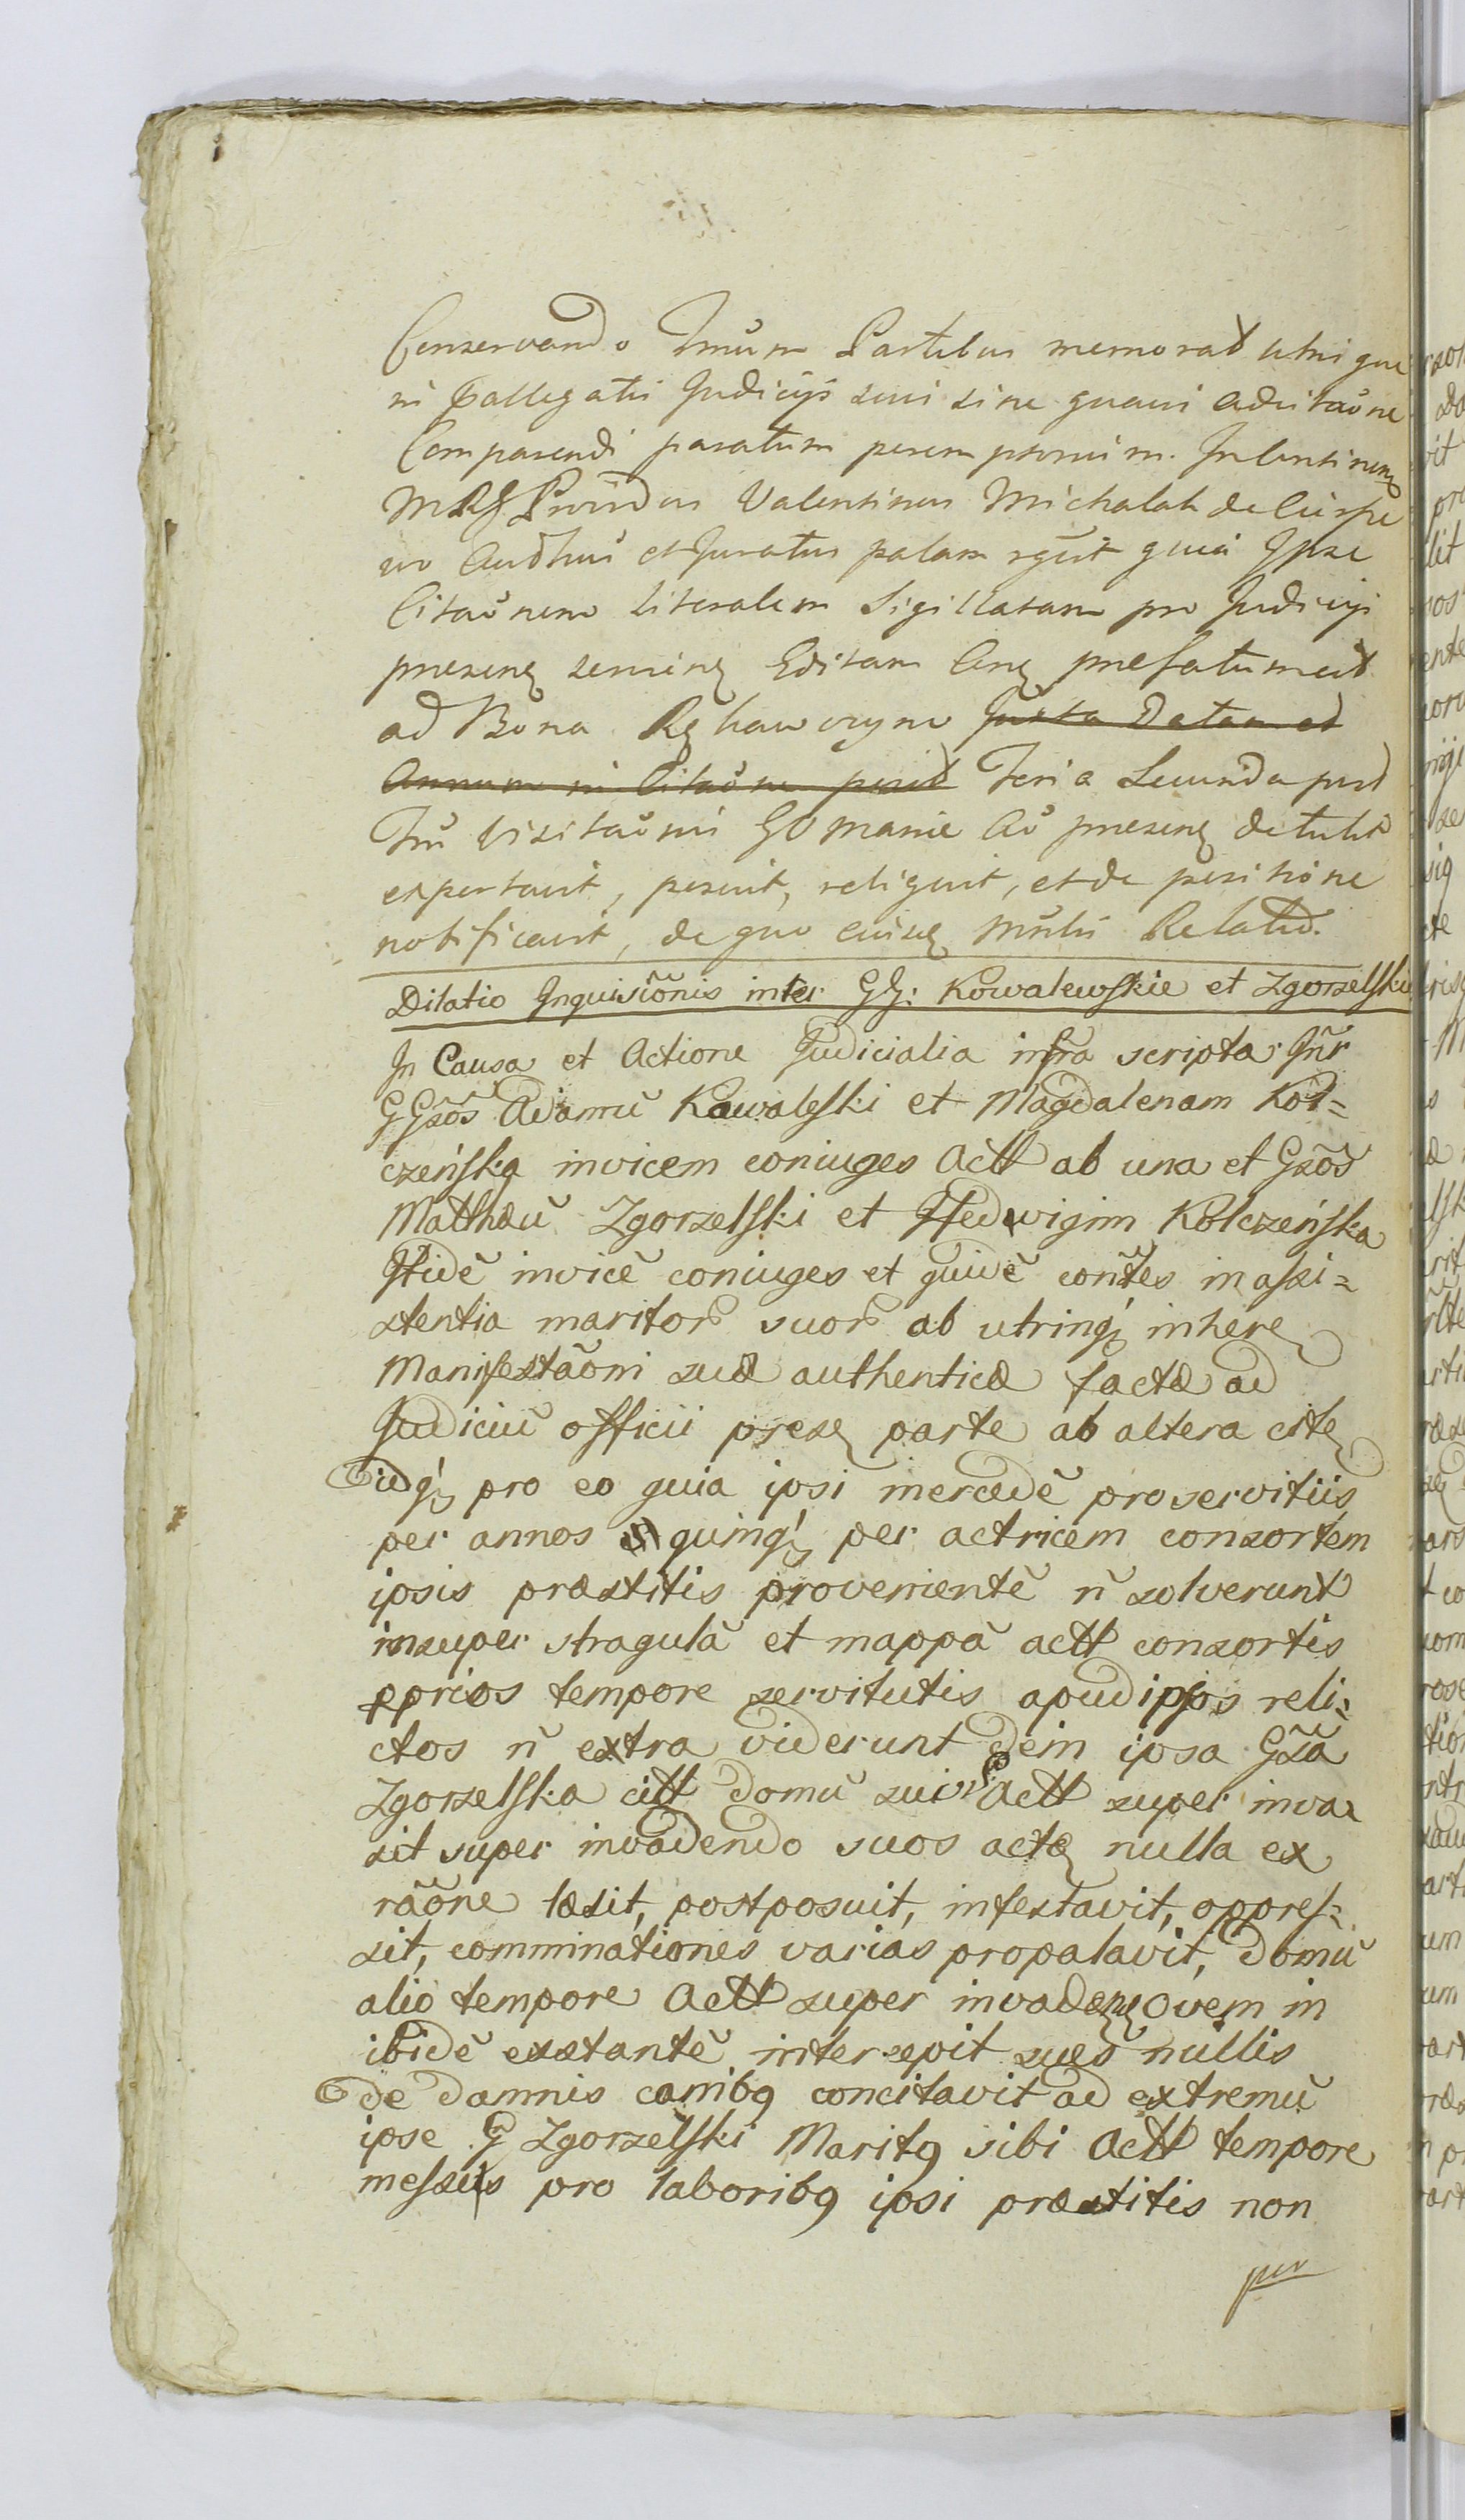 Conservando Tmūm Partibus memorat utrique
in pallegatis Judicijs sivi sine quavi aditaōne
Comparendi paratum peremptorium. In Continenti
MRJ Providus Valentinus Michalak de Cierpie
wo Authus et Juratus palam rgūit quia Ipse
Citaōnem literalem Sigillatam pro Judicijs
presenę seminę Editam Anę prefatumeit
ad Bona Rękawczyno Juxta Datam et
Annum in Citaōne posit Feria Secunda post
Fm̄ Visitaōnis GV Mariæ Aō presenę detulit
exportavit, posuit, reliquit, et de positione
notificavit, de quo eiusę Mnlis Relatio.
Dilatio Inquisiōnis inter GG: Kowalewskie et Zgorzelskie
In Causa et Actione Judicialia infra scripta Inr̄
GGsōs Adamū Kowaleski et Magdalenam Kol=
czeńską invicem coniuges Actt ab una et Gsōs
Matthæū Zgorzelski et Hedwigim Kolczeńska
Itidē invicē coniuges et quidē con̄tes in assi=
stentia maritor suor ab utrinq; inherę
Manifestaōni suæ authenticæ factæ ad
Judiciū officii presę parte ab altera citę
idq; pro eo quia ipsi mercedē pro servitiis
per annos quinq; per actricem consortem
ipsis præstitis provenientē n̄ solverunt
insuper stragulā et mappā actt consortis
pprios tempore servitutis apud ipsos reli=
ctos n̄ extra viderunt dein ipsa Gsā
Zgorzelska citt domū sui Actt super inva=
sit super invadendo suos actę nulla ex
rāone læsit, postposuit, infestavit, oppres=
sit, comminationes varias propalavit, domū
alio tempore Actt super invadenę Ovem in
ibidē exstantē intercepit sues nullis
de damnis canibꝯ concitavit ad extremū
ipse G Zgorzelski Maritꝯ sibi Actt tempore
messis pro laboribꝯ ipsi præstitis non
per